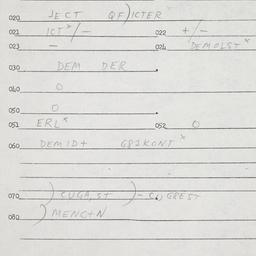 020 JECT QF)ICTER
021 ICT*/- 022 +/-
023 - 024 DEMOLST*
030 DEM DER
040 0
050 0
051 ERL* 052 0
060 DEMID+ G82KONT*
070 )CUGA,ST )-CUGREST
080 )MENC+N